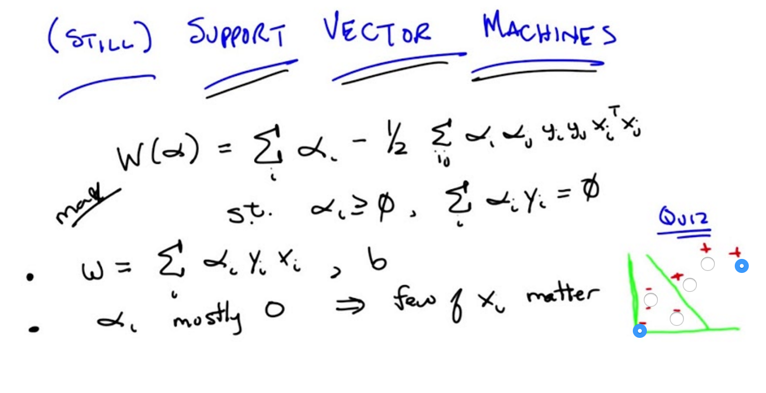 (STILL) SUPPORT VECTOR MACHINES
W(α) = Σᵢ αᵢ - 1/2 Σᵢⱼ αᵢ αⱼ yᵢ yⱼ xᵢᵀxⱼ
max
s.t. αᵢ ≥ 0, Σᵢ αᵢ yᵢ = 0
Quiz
• w = Σᵢ αᵢ yᵢ xᵢ , b
• αᵢ mostly 0 ⇒ few of xᵢ matter
+ +
+
-
- -
-